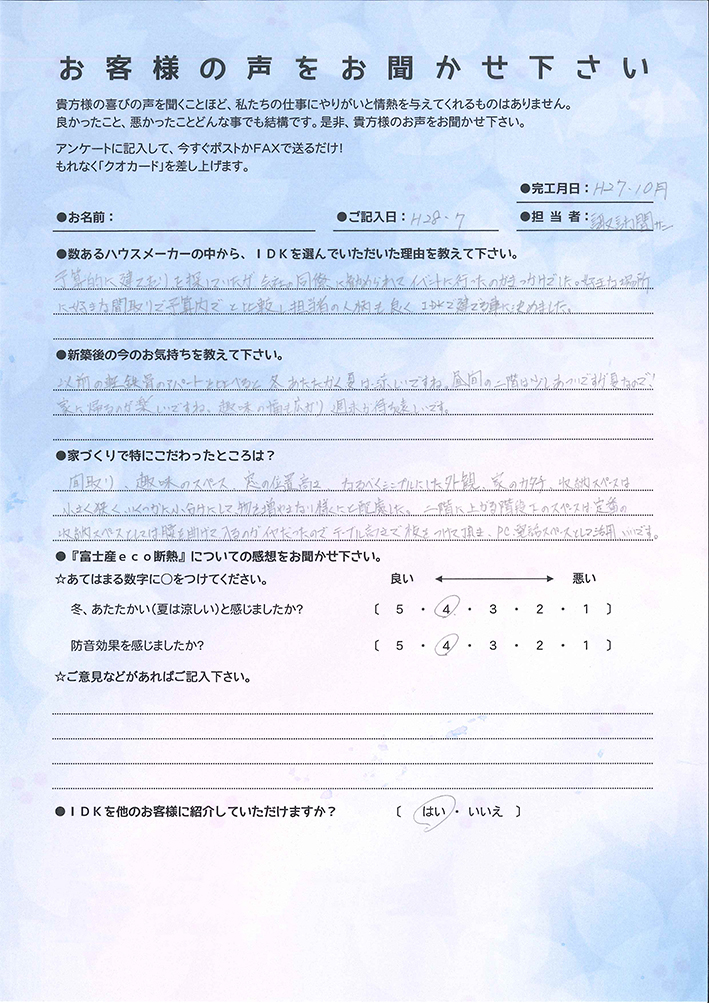 お客様の声をお聞かせ下さい
貴方様の喜びの声を聞くことほど、私たちの仕事にやりがいと情熱を与えてくれるものはありません。
良かったこと、悪かったことどんな事でも結構です。是非、貴方様のお声をお聞かせ下さい。
アンケートに記入して、今すぐポストかFAXで送るだけ!
もれなく「クオカード」を差し上げます。
●完工月日：H27.10月
●お名前： ●ご記入日：H28.7 ●担当者：諏訪間サン
●数あるハウスメーカーの中から、ＩＤＫを選んでいただいた理由を教えて下さい。
予算的に建てむりを探していたが会社の同僚に勧められてイベントに行ったのがきっかけでした。好きな場所
に好きな間取りで予算内でと比較し担当者の人柄も良くIDKで建てる事に決めました。
●新築後の今のお気持ちを教えて下さい。
以前の軽鉄骨のアパートとくらべると、冬あたたかく夏は涼しいですね。昼間の二階は少しあついですが
家に帰るのが楽しいですね、趣味の幅も広がり週末が待ち遠しいです。
●家づくりで特にこだわったところは？
間取り、趣味のスペース、窓の位置高さ、なるべくシンプルにした外観、家のカタチ、収納スペースは
小さく狭くいくつか小分けにして物を増やさない様にと配慮した。二階に上がる階段下のスペースは定番の
収納スペースとしては腰を曲げて入るのがイヤだったのでテーブル高さで板をつけて頂き、PC、電話スペースとして活用
●『富士産ｅｃｏ断熱』についての感想をお聞かせ下さい。
☆あてはまる数字に○をつけてください。 良い 悪い
冬、あたたかい（夏は涼しい）と感じましたか？ 〔 5 ・ 4 ・ 3 ・ 2 ・ 1 〕
防音効果を感じましたか？ 〔 5 ・ 4 ・ 3 ・ 2 ・ 1 〕
☆ご意見などがあればご記入下さい。
●ＩＤＫを他のお客様に紹介していただけますか？ 〔 はい ・ いいえ 〕